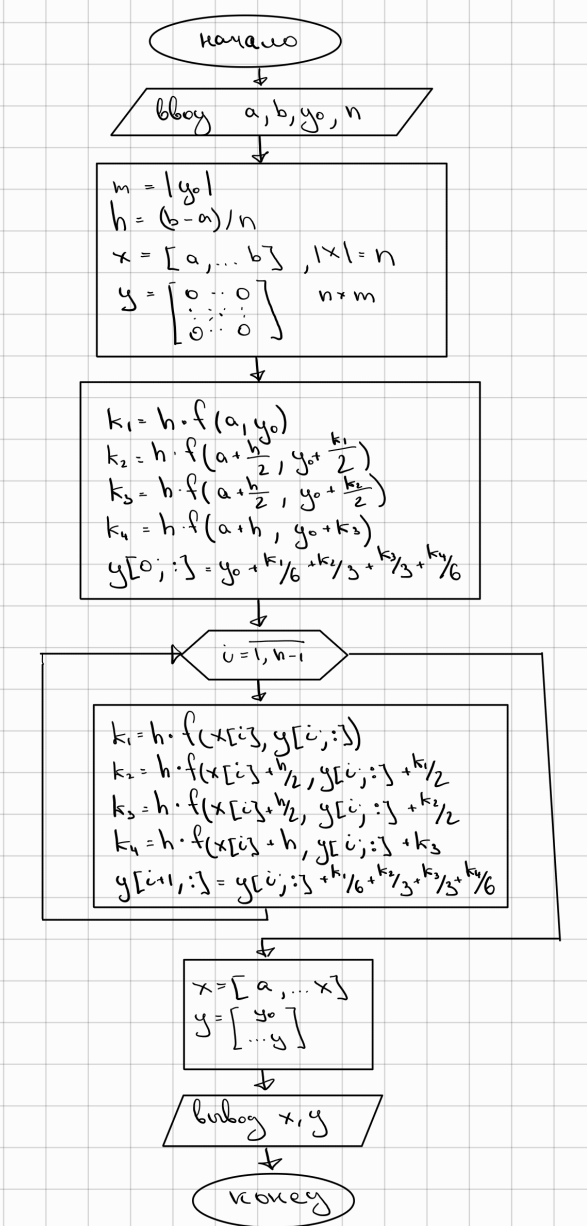 начало
ввод a, b, y₀, n
m = |y₀|
h = (b-a)/n
x = [a, ... b] , |x| = n
y = [0 ·· 0
0 ·· 0] n × m
k₁ = h · f(a, y₀)
k₂ = h · f(a + h/2, y₀ + k₁/2)
k₃ = h · f(a + h/2, y₀ + k₂/2)
k₄ = h · f(a+h, y₀+k₃)
y[0, :] = y₀ + k₁/6 + k₂/3 + k₃/3 + k₄/6
i = 1, n-1
k₁ = h · f(x[i], y[i, :])
k₂ = h · f(x[i] + h/2, y[i, :] + k₁/2
k₃ = h · f(x[i] + h/2, y[i, :] + k₂/2
k₄ = h · f(x[i] + h, y[i, :] + k₃
y[i+1, :] = y[i, :] + k₁/6 + k₂/3 + k₃/3 + k₄/6
x = [a, ... x]
y = [y₀
... y]
вывод x, y
конец